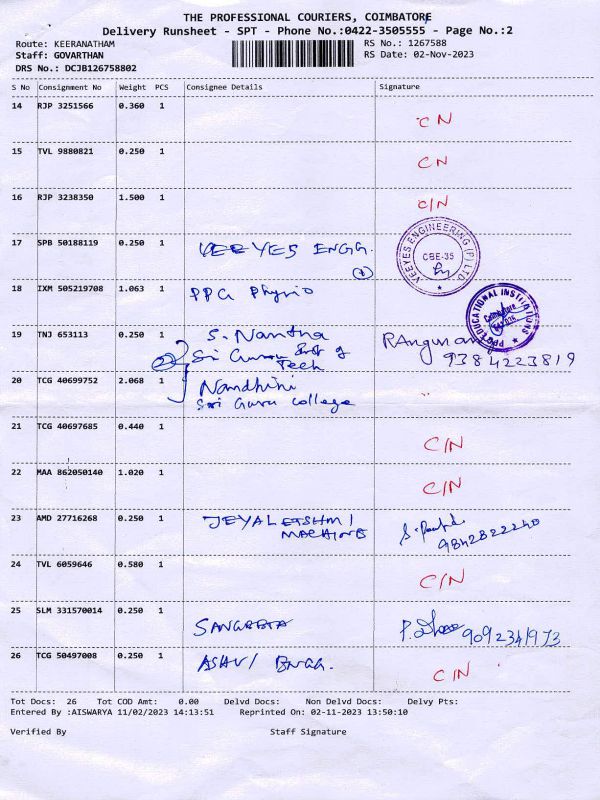 THE PROFESSIONAL COURIERS, COIMBATORE
Delivery Runsheet - SPT - Phone No.:0422-3505555 - Page No.:2
Route: KEERANATHAM
RS No.: 1267588
Staff: GOVARTHAN
RS Date: 02-Nov-2023
DRS No.: DCJB126758802
S No Consignment No Weight PCS Consignee Details Signature
14 RJP 3251566 0.360 1 CN
15 TVL 9880821 0.250 1 CN
16 RJP 3238350 1.500 1 C/N
17 SPB 50188119 0.250 1 VEEYES ENGG.
VEEYES ENGINEERING (P) LTD
CBE-35
18 IXM 505219708 1.063 1 PPG Physio
PPG EDUCATIONAL INSTITUTIONS
Coimbatore
19 TNJ 653113 0.250 1 S. Nantha
Sri Guru Inst of
Tech
9384223819
20 TCG 40699752 2.068 1 Nandhini
Sri Guru college
21 TCG 40697685 0.440 1 C/N
22 MAA 862050140 1.020 1 C/N
23 AMD 27716268 0.250 1 JEYALETSHMI
MACHINE
9842822240
24 TVL 6059646 0.580 1 C/N
25 SLM 331570014 0.250 1 SANGEETA 9092341973
26 TCG 50497008 0.250 1 ENGG. C/N
Tot Docs: 26 Tot COD Amt: 0.00 Delvd Docs: Non Delvd Docs: Delvy Pts:
Entered By :AISWARYA 11/02/2023 14:13:51 Reprinted On: 02-11-2023 13:50:10
Verified By Staff Signature